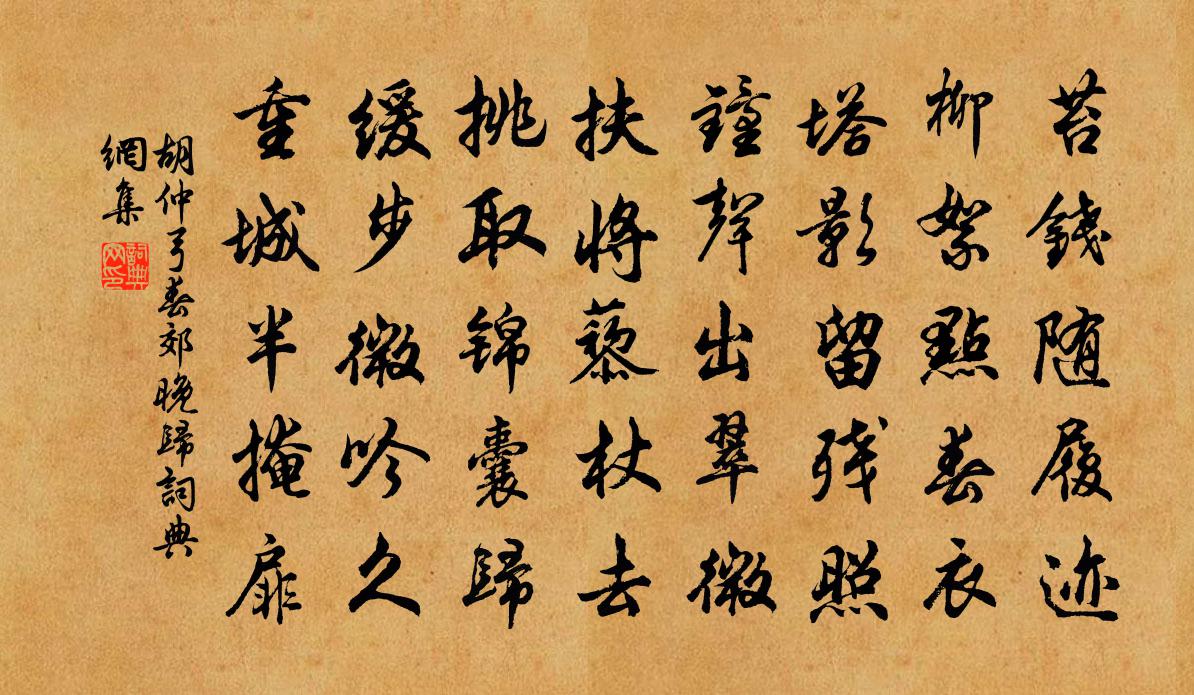 苔錢随履迹
柳絮點春衣
塔影留残照
鐘聲出翠微
扶將藜杖去
挑取錦囊歸
緩步微吟久
重城半掩扉
胡仲弓春郊晚歸詞典
網集
詞典
网印